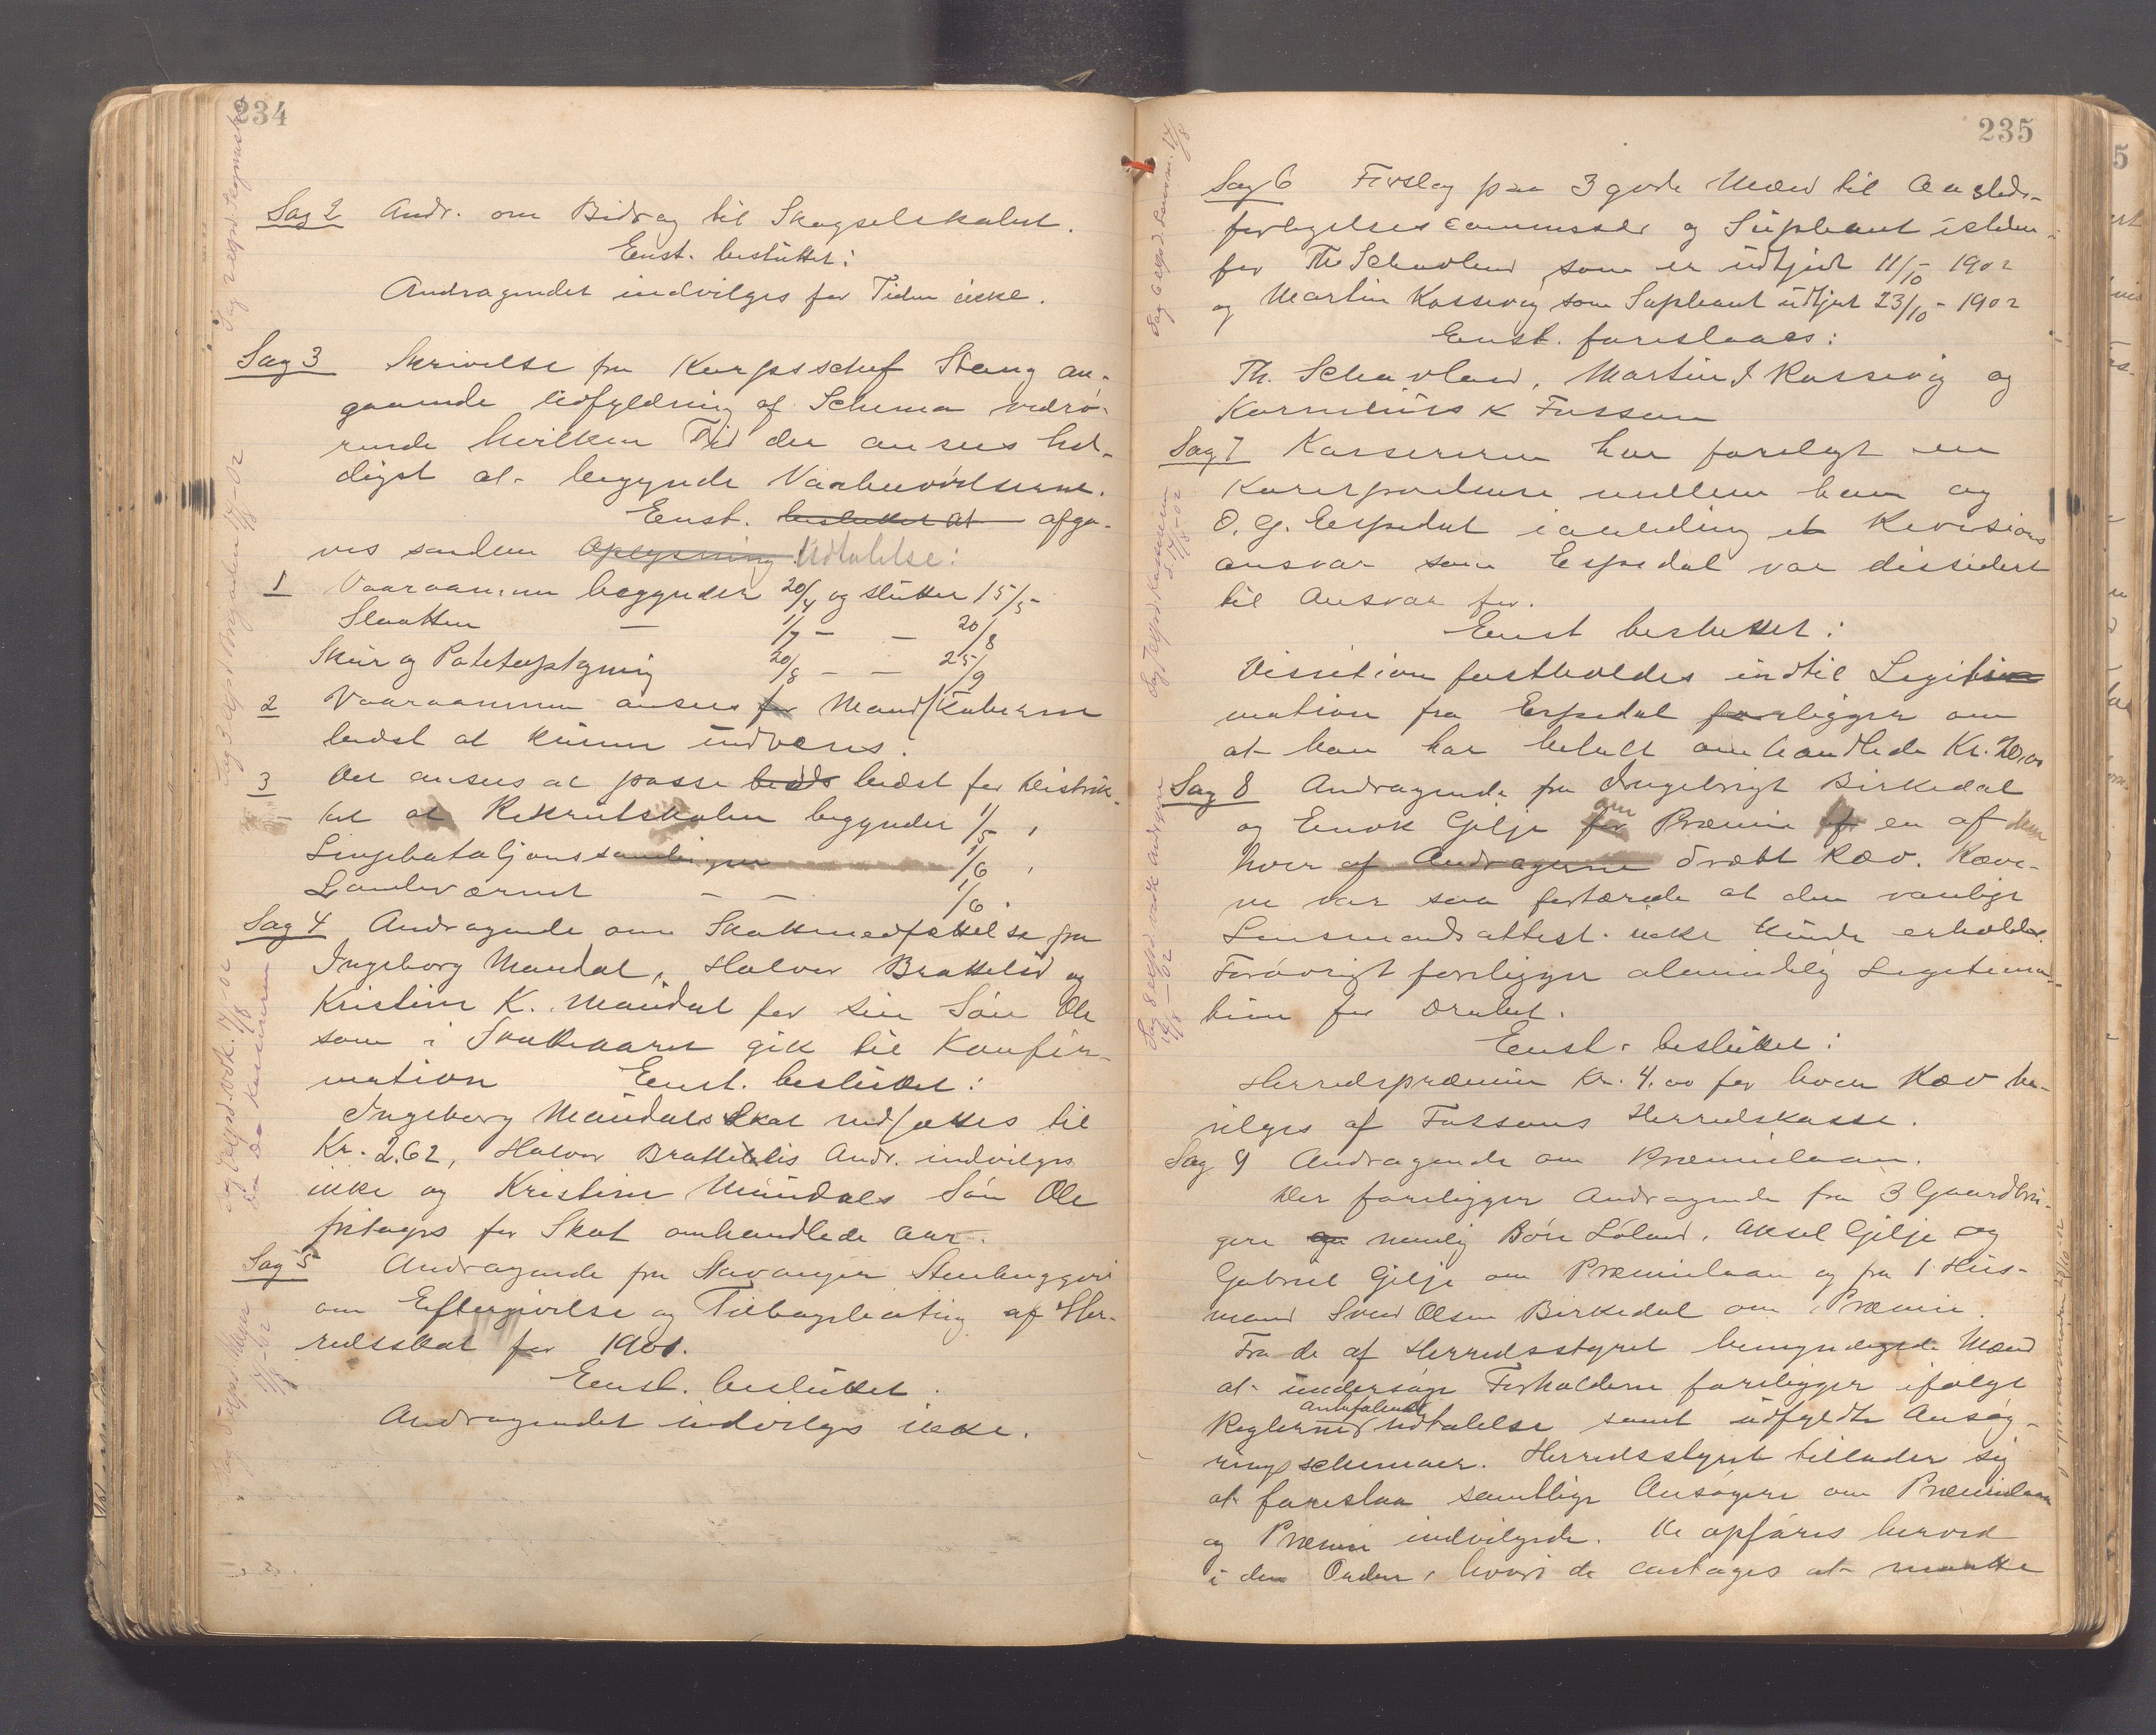 234
Sag 2 Andr. om Bidrag til Skogselskabet.
Enst. besluttet:
Andragendet indvilges for Tiden ikke.
Sag 3 Skrivelse fra Korpsschef Stang an-
gaaende Udfyldning af Schema vedrø-
rende hvilken Tid der ansees hel-
digst at begynde Vaabenøvelserne.
Enst. besluttet at afga-
ves saadan Oplysning Udtalelse:
1 Vaaraannen begynder 20/4 og slutter 15/5
Slaatten — 1/7 — — 20/8
Skur og Potetoptagning 20/8 — — 25/9
2 Vaaraannen ansees for Mandskaberne
bedst at kunne undværes.
3 Det ansees at passe beds bedst for Distrik-
tet at Rekrutskolen begynder 1/5,
Linjebataljonssamlingen 1/6,
Landeværnet — — 1/6.
Sag 4 Andragende om Skattenedsettelse fra
Ingeborg Maudal, Halvor Brattelid og
Kristine K. Maudal for sin Søn Ole
som i Skatteaaret gik til Konfir-
mation Enst. besluttet:
Ingeborg Maudals Skat nedsættes til
Kr. 2.62, Halvor Brattelis Andr. indvilges
ikke og Kristine Maudals Søn Ole
fritages for Skat omhandlede Aar.
Sag 5 Andragende fra Stavanger Stenhuggeri
om Eftergivelse og Tilbagebetaling af Her-
redsskat for 1901.
Enst. besluttet.
Andragendet indvilges ikke.
235
Sag 6 Forslag paa 3 gode Mænd til Amtsveds-
forligelsescommissær og Supleant istden-
for Th. Schavland som er udtjent 11/10 1902
og Martin Kossevig som Supleant udtjent 23/10 - 1902
Enst. foreslaaes:
Th. Schavland, Martin I Kossevig og
Kornelius K Fossan
Sag 7 Kassereren har forelagt en
Korrespondense mellem ham og
O. G. Espedal i anledning et Revisions
ansvar som Espedal var dissidert
til Ansvar for.
Enst besluttet:
Dissition fastholdes indtil Legiti
mation fra Espedal foreligger om
at han har betalt omhandlede Kr. 20,00
Sag 8 Andragende fra Ingebrigt Birkedal
og Enok Gilje for om Præmie af for en af dem
hver af Andragerne dræbt Ræv. Ræve-
ne var saa fortærede at den vanlige
Lensmandsattest ikke kunde erholdes.
Forøvrigt foreligger almindelig Legitima-
tion for Drabet.
Enst. besluttet:
Herredspræmie Kr. 4.00 for hver Ræv be-
vilges af Fossans Herredskasse.
Sag 9 Andragende om Præmielaan.
Der foreligger Andragende fra 3 Gaardbru-
gere og nemlig Børe Løland, Aksel Gilje og
Gabriel Gilje om Præmielaan og fra 1 Hus-
mand Sven Olsen Birkedal om Præmie.
Fra de af Herredsstyret bemyndigede Mænd
at undersøge Forholdene foreligger ifølge
Reglerne anbefalende Udtalelse samt udfyldte Ansøg-
ningsschemaer. Herredsstyret tillader sig
at foreslaa samtlige Ansøgere om Præmielaan
og Præmie indvilgede. De opføres herved
i den Orden, hvori de antages at maatte